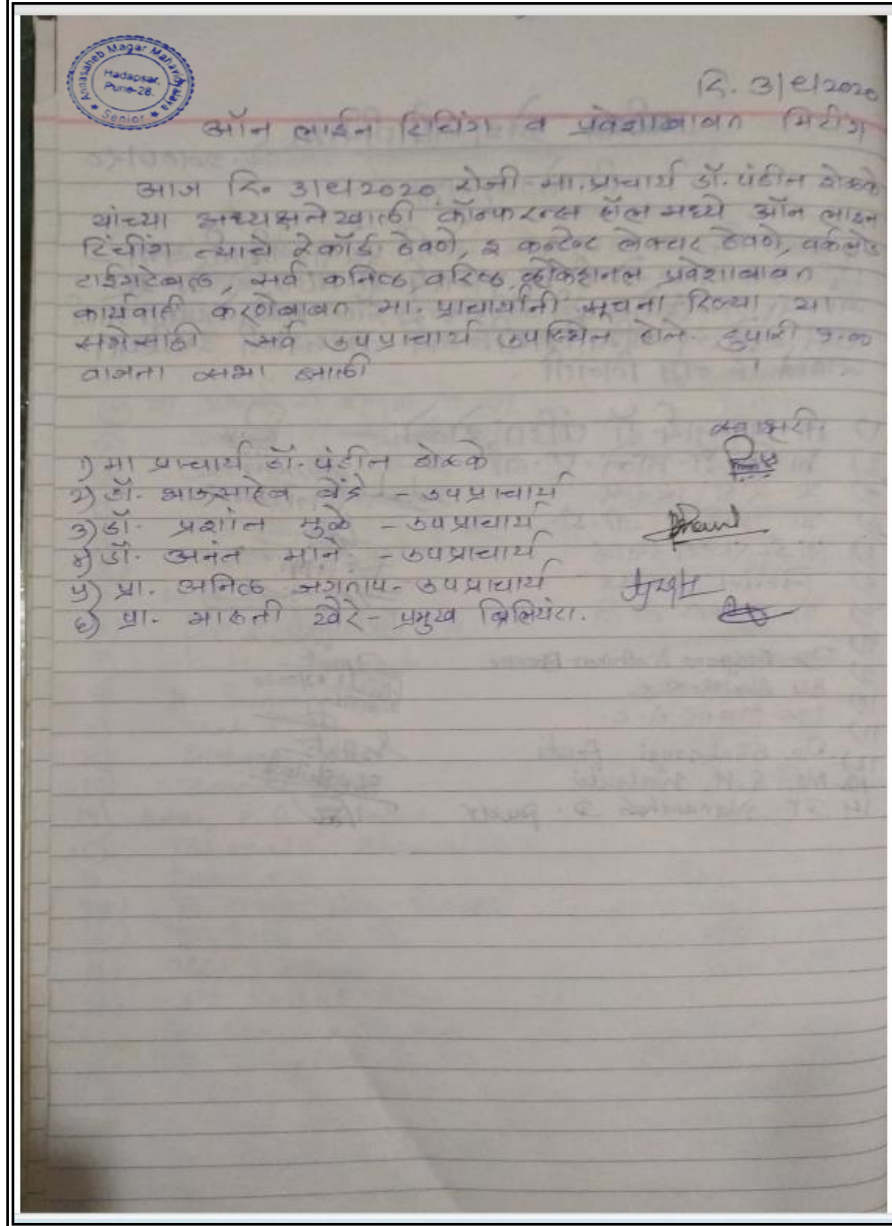 Annasaheb Magar Mahavidyalaya
Hadapsar,
Pune-28.
★ Senior ★
दि. ३|९|२०२०
ऑन लाईन टिचिंग व प्रवेशाबाबत मिटींग
आज दि. ३|९|२०२० रोजी मा. प्राचार्य डॉ. पंडीत शेळके
यांच्या अध्यक्षतेखाली कॉन्फरन्स हॉल मध्ये ऑन लाइन
टिचींग त्याचे रेकॉर्ड ठेवणे, इ कन्टेन्ट लेक्चर ठेवणे, वर्कलोड
टाईमटेबल, सर्व कनिष्ठ, वरिष्ठ, व्होकेशनल प्रवेशाबाबत
कार्यवाही करणेबाबत मा. प्राचार्यांनी सूचना दिल्या या
सभेसाठी सर्व उपप्राचार्य उपस्थित होते. दुपारी १.००
वाजता सभा झाली
स्वाक्षरी
१) मा प्राचार्य डॉ. पंडीत शेळके
२) डॉ. भाऊसाहेब बेंद्रे - उपप्राचार्य
३) डॉ. प्रशांत मुळे - उपप्राचार्य
४) डॉ. अनंत माने - उपप्राचार्य
५) प्रा. अनिल जगताप - उपप्राचार्य
६) प्रा. मारुती खैरे - प्रमुख